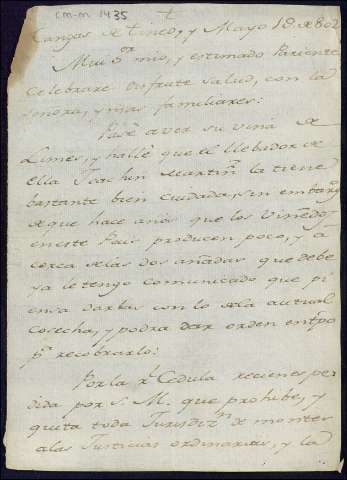 cm-m 1435
+
Cangas de Tineo, y Mayo 18. de 802,
Mui Sor mio, y estimado Pariente
celebrare disfrute salud, con la
señora, y mas familiares:
Pasé a ver su viña de
Limes, y hallé que el llebador de
ella Joachin Martinz la tiene
bastante bien cuidada, sin embargo
de que hace años que los viñedos
en este Pais producen poco, y a
cerca de las dos añadas que debe
ya le tengo comunicado que pi
ensa darlas con lo de la actual
cosecha, y podra dar orden en tpo
pa recobrarlo:
Por la rl Cedula recien espe
dida por S. M. que prohibe, y
quita toda Jurisdizn de montes
a las Justicias ordinarias, y la